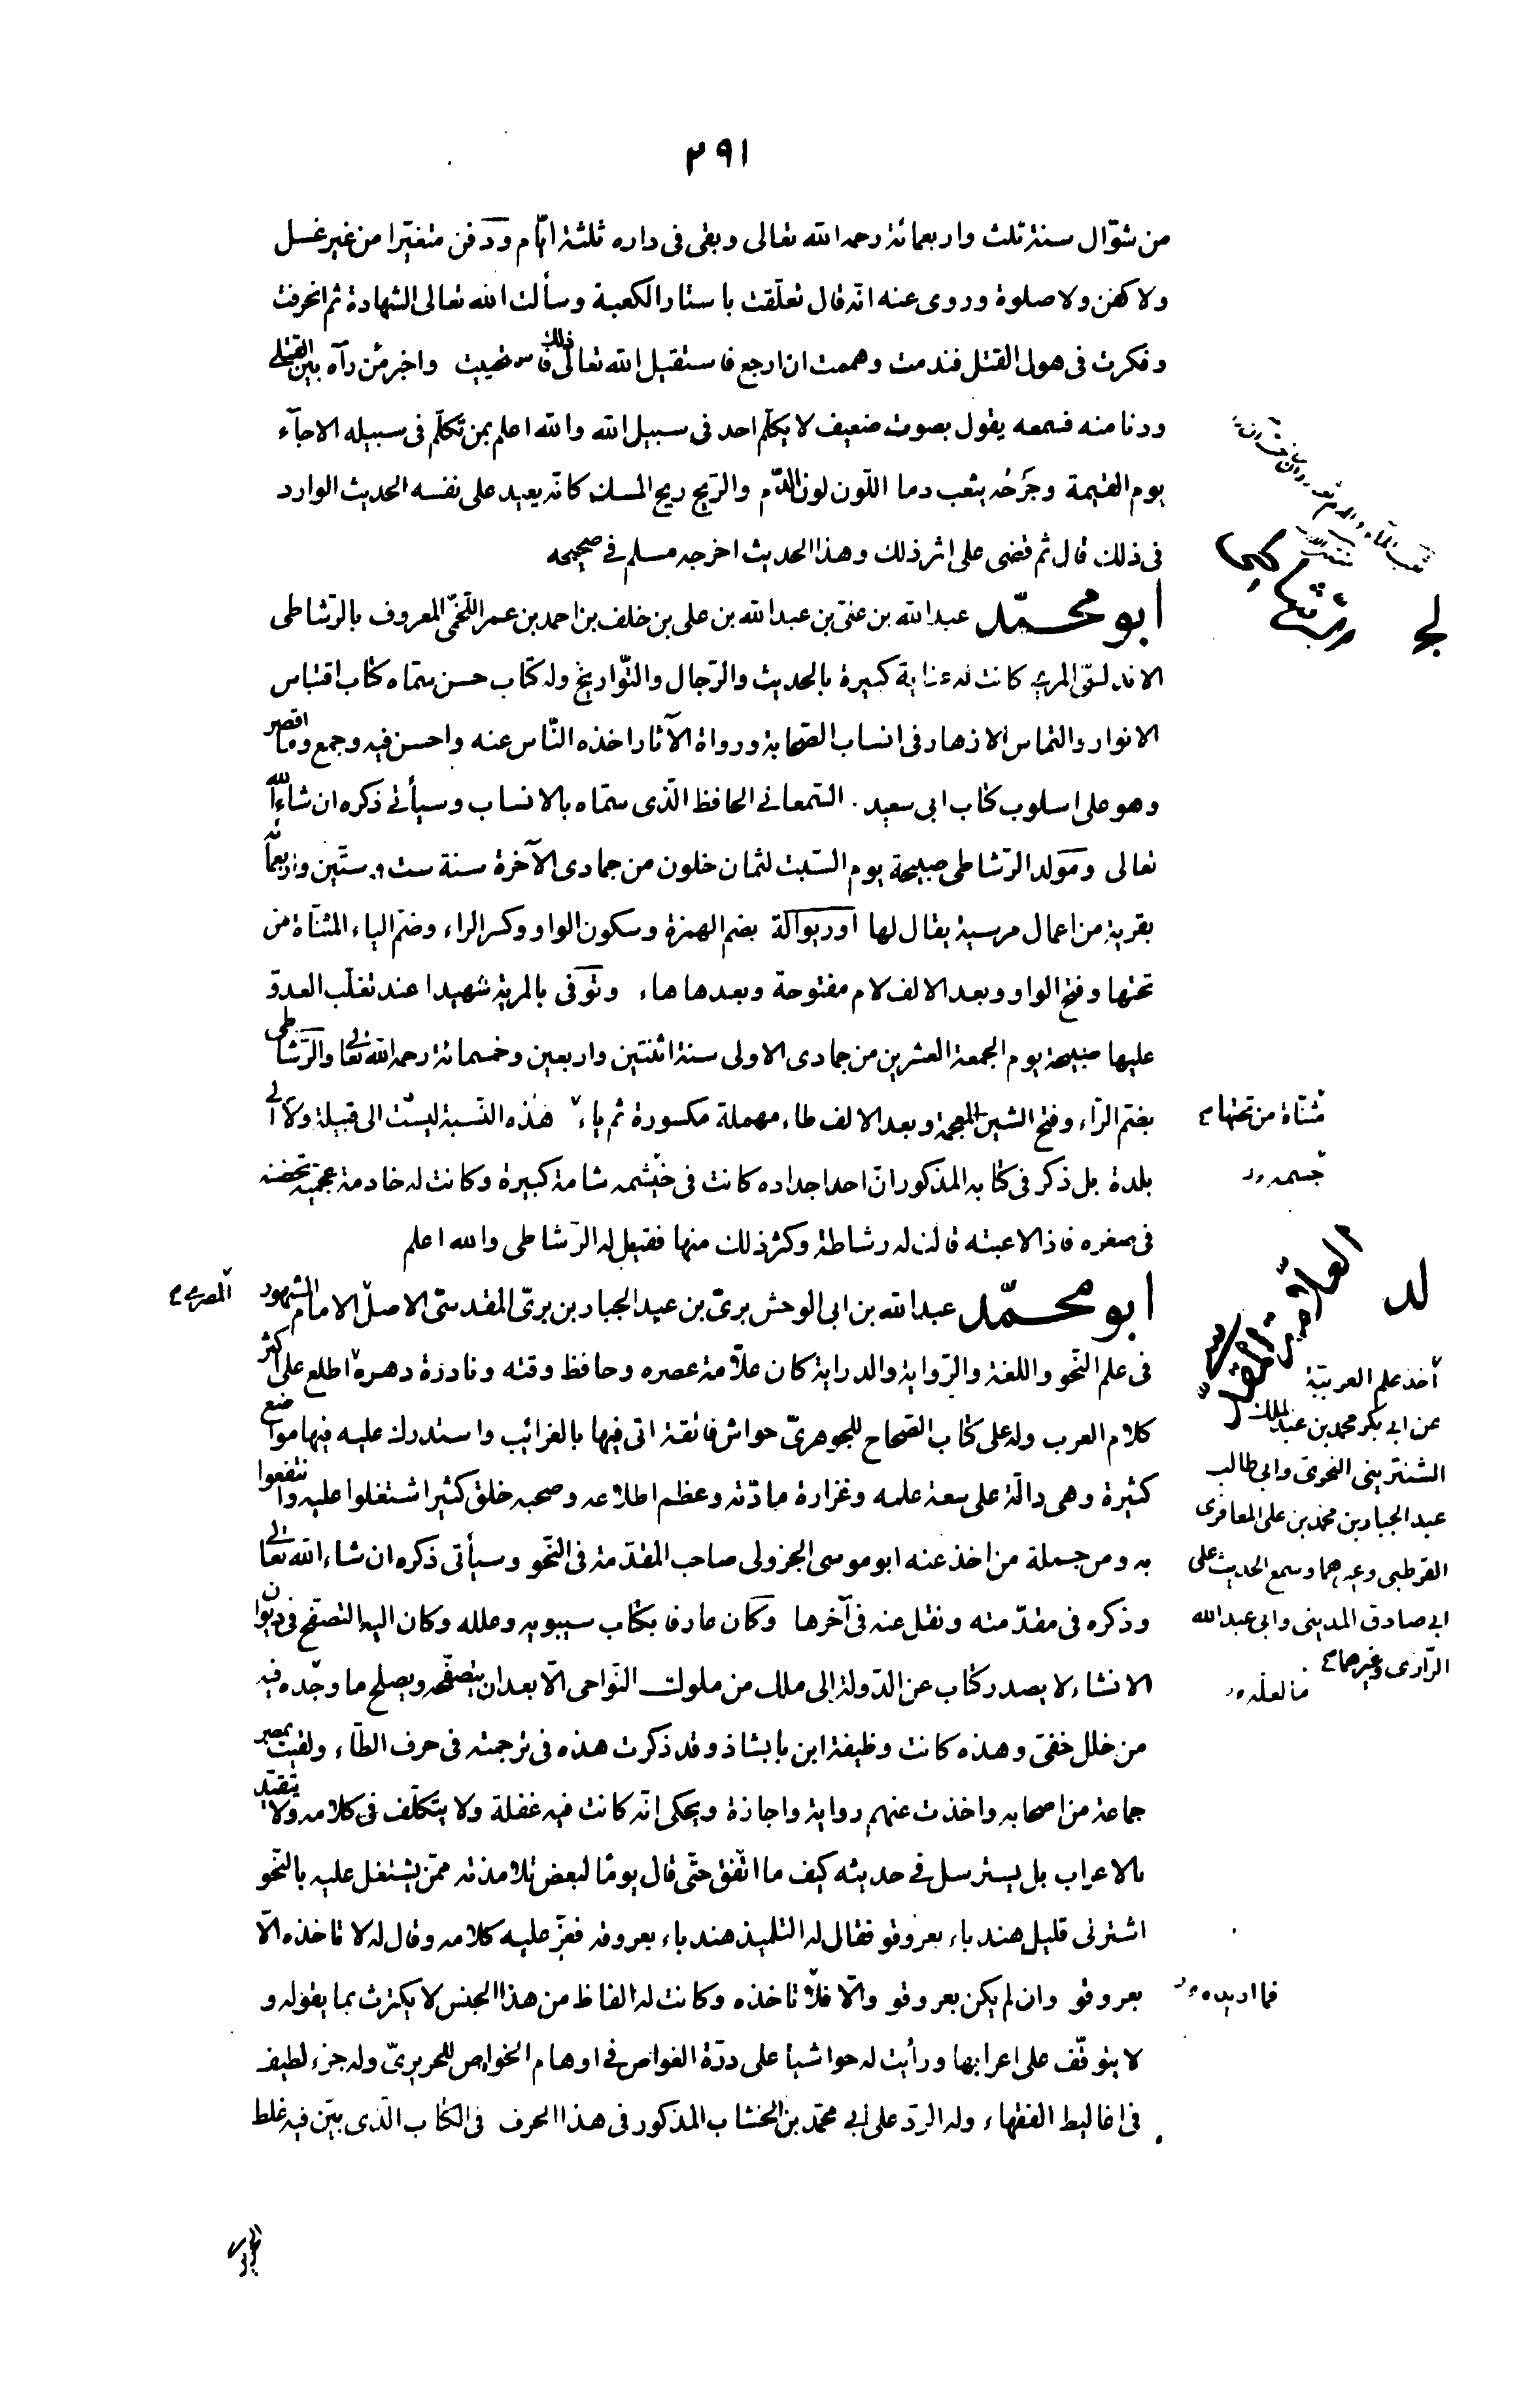 ٢٩١
من شوّال سنة ثلث واربعمائة رحمه الله تعالى وبقى فى داره ثلثة ايّام ودفن متغيّرا من غير غسل
ولا كفن ولا صلوة وروى عنه انه قال تعلّقت باستار الكعبة وسألت الله تعالى الشهادة ثم انحرفت
وفكرت فى هول القتل فندمت وهممت ان ارجع فاستقيل الله تعالى ذلك فاستحييت واخبر من رآه بين القتلى
ودنا منه فسمعه يقول بصوت ضعيف لا يكلم احد فى سبيل الله والله اعلم بمن تكلّم فى سبيله الا جآء
يوم القيمة وجرحه يثعب دما اللّون لون الدّم والرّيح ريح المسك كانّه يعيد على نفسه الحديث الوارد
فى ذلك قال ثم قضى على اثر ذلك وهذا الحديث اخرجه مسلم فى صحيحه
ابو محمّد عبد الله بن على بن عبد الله بن على بن خلف بن احمد بن عمر اللّخمّى المعروف بالرّشاطى
الاندلسّى المرى كانت له عناية كبيرة بالحديث والرّجال والتّواريخ وله كتاب حسن سمّاه كتاب اقتباس
الانوار والتماس الازهار فى انساب الصّحابة ورواة الآثار اخذه النّاس عنه واحسن فيه وجمع وما اقصر
وهو على اسلوب كتاب ابى سعيد السّمعانى الحافظ الّذى سمّاه بالانساب وسيأتى ذكره ان شاء الله
تعالى ومولد الرّشاطى صبيحة يوم السّبت لثمان خلون من جمادى الآخرة سنة ست وستّين واربعمائه
بقرية من اعمال مرسية يقال لها اوريوالة بضم الهمزة وسكون الواو وكسر الراء وضمّ الياء المثنّاة من
تحتها وفتح الواو وبعد الالف لام مفتوحة وبعدها هاء وتوفى بالمرية شهيدا عند تغلّب العدوّ
عليها صبيحة يوم الجمعة العشرين من جمادى الاولى سنة اثنتين واربعين وخمسمائة رحمه الله تعالى والرّشاطى
بضمّ الرّاء وفتح الشين المعجمة وبعد الالف طاء مهملة مكسورة ثم ياء هذه النّسبة ليست الى قبيلة ولا الى
مثنّاة من تحتها
بلدة بل ذكر فى كتابه المذكور انّ احد اجداده كانت فى جسمه شامة كبيرة وكانت له خادمة عجميّة تحضنه
فى صغره فاذا لاعبته قالت له رشاطة وكثر ذلك منها فقيل له الرّشاطى والله اعلم
ابو محمّد عبد الله بن ابى الوحش برىّ بن عبد الجبار بن برىّ المقدسّى الاصل الامام المشهور
المصرى
فى علم النّحو واللغة والرّواية والدراية كان علاّمة عصره وحافظ وقته ونادرة دهره اطلع على اكثر
كلام العرب وله على كتاب الصّحاح للجوهرىّ حواش فائقة اتى فيها بالغرائب واستدرك عليه فيها مواضع
كثيرة وهى دالّة على سعة علمه وغزارة مادّته وعظم اطلاعه وصحبه خلق كثير اشتغلوا عليه وانتفعوا
به ومن جملة من اخذ عنه ابو موسى الجزولى صاحب المقدّمة فى النّحو وسيأتى ذكره ان شاء الله تعالى
وذكره فى مقدّمته ونقل عنه فى آخرها وكان عارفا بكتاب سيبويه وعلله وكان اليه التصفّح فى ديوان
الانشاء لا يصدر كتاب عن الدّولة الى ملك من ملوك النّواحى الّا بعد ان يتصفّحه ويصلح ما وجّده فيه
من خلل خفىّ وهذه كانت وظيفة ابن بابشاذ وقد ذكرت هذه فى ترجمته فى حرف الطّاء ولقيت بمصر
جماعة من اصحابه واخذت عنهم رواية واجازة ويحكى انّه كانت فيه غفلة ولا يتكلّف فى كلامه ولا يتقيّد
بالاعراب بل يسترسل فى حديثه كيف ما اتّفق حتّى قال يومًا لبعض تلامذته ممّن يشتغل عليه بالنّحو
اشتر لى قليل هندباء بعروقو فقال له التلميذ هندباء بعروقه فعزّ عليه كلامه وقال له لا تاخذه الّا
بعروقو وان لم يكن بعروقو والّا فلا تاخذه وكانت له الفاظ من هذا الجنس لا يكترث بما يقوله و
لا يتوقّف على اعرابها ورأيت له حواشيا على درّة الغواص فى اوهام الخواص للحريرىّ وله جزء لطيف
فى اغاليط الفقهاء وله الردّ على ابى محمّد بن الخشاب المذكور فى هذا الحرف فى الكتاب الّذى بيّن فيه غلط
رشاطى
لج
جسمه
لد
العلامة
أخذ علم العربيّة
عن ابى بكر محمد بن عبد الملك
الشنترينى النحوى وابى طالب
عبد الجبار بن محمد بن على المعافرى
القرطبى وغيرهما وسمع الحديث على
ابى صادق المدينى وابى عبد الله
الرّازى وغيرهما
لعلّه
فما اريده